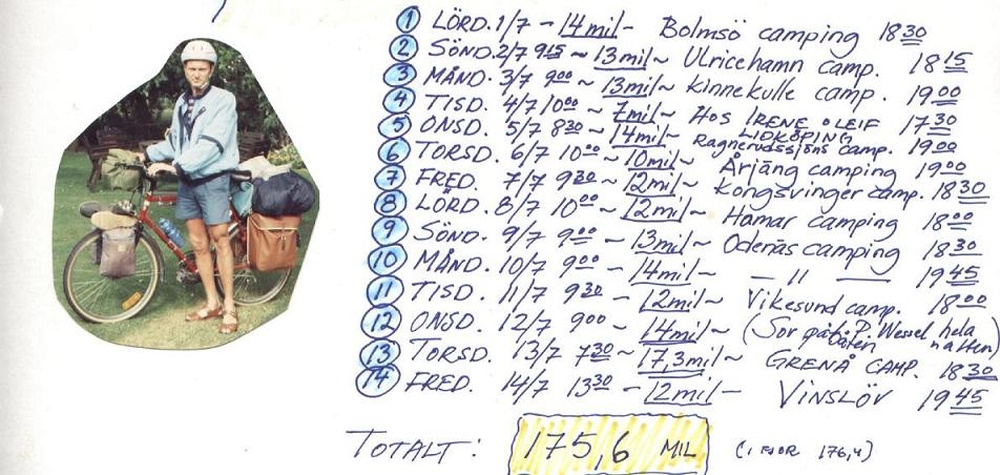 ① LÖRD. 1/7 - 14 mil - Bolmsö camping 18 30
② SÖND. 2/7 9 15 ~ 13 mil ~ Ulricehamn camp. 18 15
③ MÅND. 3/7 9 00 ~ 13 mil ~ Kinnekulle camp. 19 00
④ TISD. 4/7 10 00 ~ 7 mil ~ HOS IRENE o LEIF LIDKÖPING 17 30
⑤ ONSD. 5/7 8 30 ~ 14 mil ~ Ragnerudssjöns camp. 19 00
⑥ TORSD. 6/7 10 00 ~ 10 mil ~ Årjäng camping 19 00
⑦ FRED. 7/7 9 30 ~ 12 mil ~ Kongsvinger camp. 18 30
⑧ LÖRD. 8/7 10 00 ~ 12 mil ~ Hamar camping 18 00
⑨ SÖND. 9/7 9 00 ~ 13 mil ~ Odenäs camping 18 30
⑩ MÅND. 10/7 9 00 ~ 14 mil ~ — 11 — 19 45
⑪ TISD. 11/7 9 30 - 12 mil ~ Vikesund camp. 18 00
⑫ ONSD. 12/7 9 00 ~ 14 mil ~ (Sov på P. Wessel hela båten natten)
⑬ TORSD. 13/7 7 30 ~ 17,3 mil ~ GRENÅ CAMP. 18 30
⑭ FRED. 14/7 13 30 - 12 mil - VINSLÖV 19 45
TOTALT: 175,6 MIL (i FJOR 176,4)